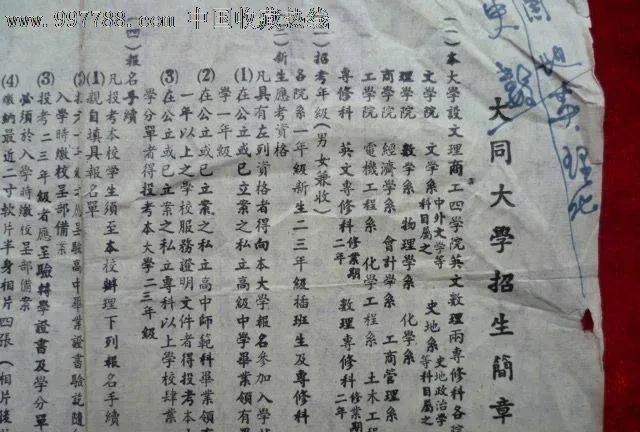 www.997788.com 中国收藏热线
大同大學招生簡章
(一)本大學設文理商工四學院英文數理兩專修科各院
文學院 文學系 中外文學等科目屬之 史地系 史地政治學等科目屬之
理學院 數學系 物理學系 化學系
商學院 經濟學系 會計學系 工商管理系
工學院 電機工程系 化學工程系 土木工程
專修科 英文專修科 修業期二年 數理專修科 修業期二年
(二)招考年級(男女兼收)
各院系一年級新生二三年級插班生及專修科
(三)新生應考資格
凡具有左列資格者得向本大學報名參加入學
(1)在公立或已立案之私立高級中學畢業領有
學一年級
(2)在公立或已立案之私立高中師範科畢業領
一年以上之學校服務證明文件者得投考本
(3)在公立或已立案之私立專科以上學校肄業
學分單者得投考本大學二三年級
(四)報名手續
凡投考本校學生須至本校辦理下列報名手續
(1)親自填具報名單
高中畢業證書驗訖隨
入學時繳校呈部備案
(3)投考二三年級者應呈驗轉學證書及學分單
必須於入學時繳校呈部備案
(4)繳納最近二寸軟片半身相片四張(相片後